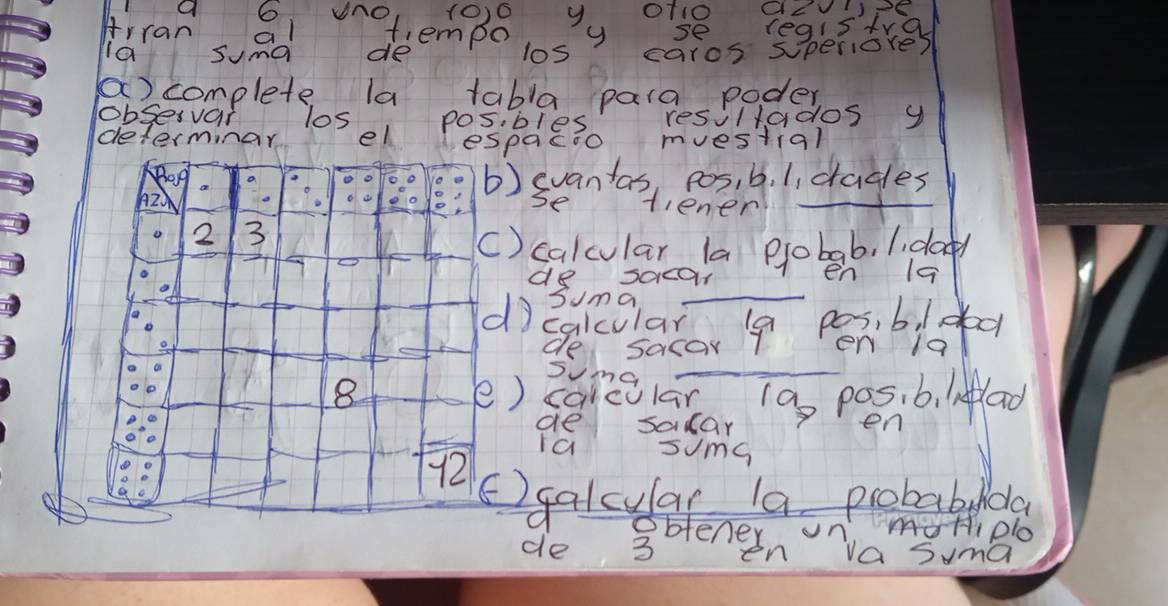 a 6 uno rojo y otro azul, se
tiran al tiempo y se registra
la suma de los caros superiores
a) complete la tabla para poder
observar los posibles resultados y
determinar el espacio muestral
Rojo
AZUL
2 3
8
12
b) cuantas posibilidades
se tienen
c) calcular la probabilidad
de sacar en la
suma
d) calcular la posibilidad
de sacar en la
suma
e) calcular la posibilidad
de sacar en
la suma
calcular la probabilida
d obtener un multiplo
de 3 en la suma